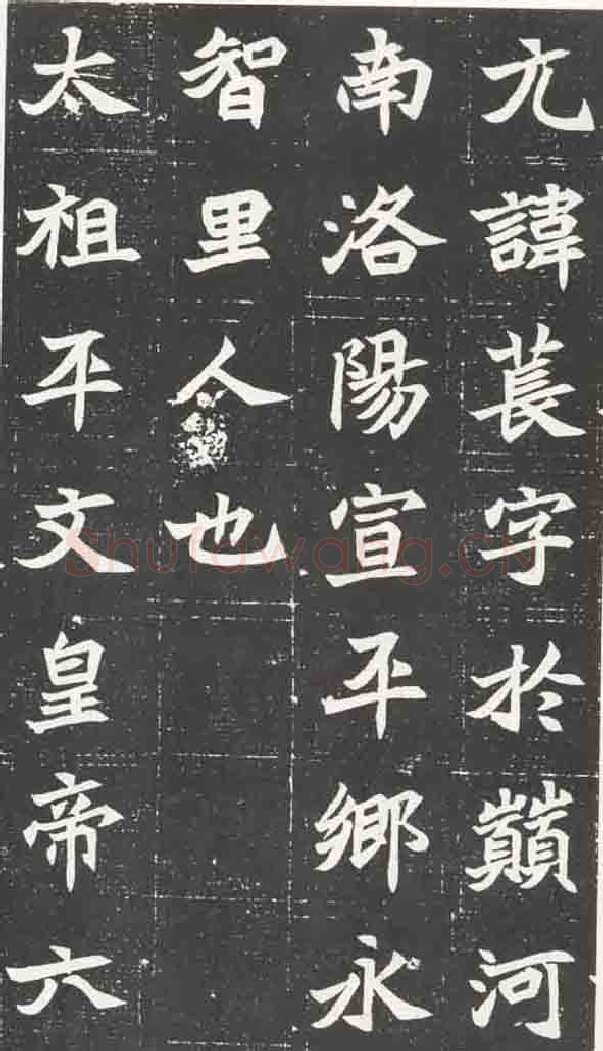 元諱萇字於巔河
南洛陽宣平鄉永
智里人也
太祖平文皇帝六
ShuFaWang.CN